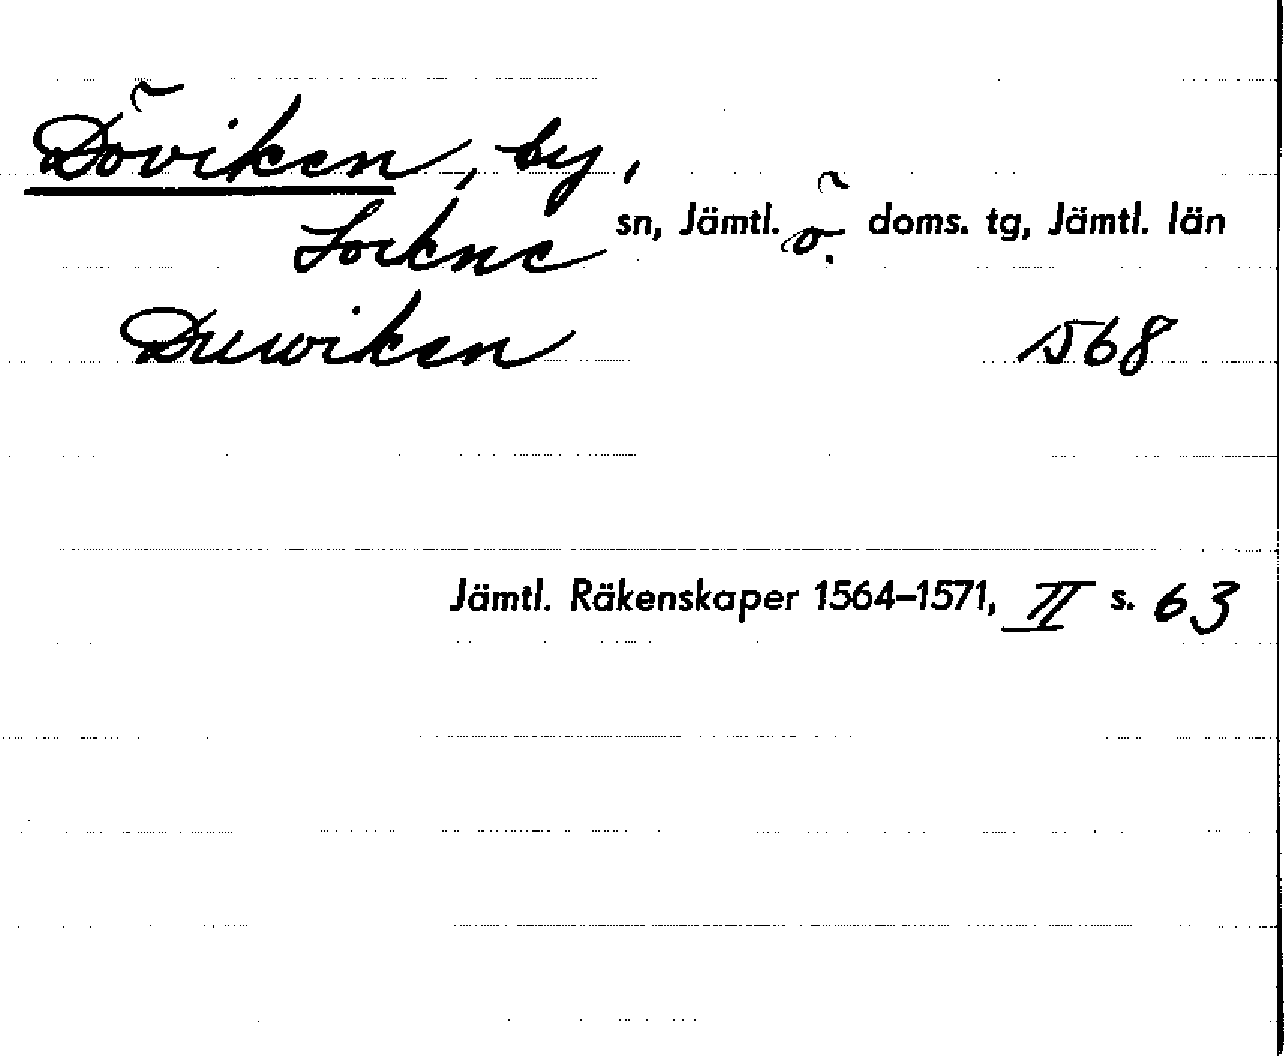 Döviken, by,
Lockne sn, Jämtl. ö. doms. tg, Jämtl. län
Duwiken 1568
Jämtl. Räkenskaper 1564–1571, II s. 63